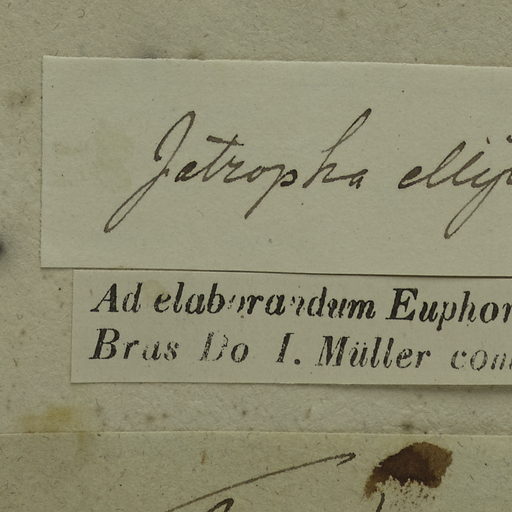 Jatropha ellip
Ad elaborandum Euphor
Bras Do I. Müller com